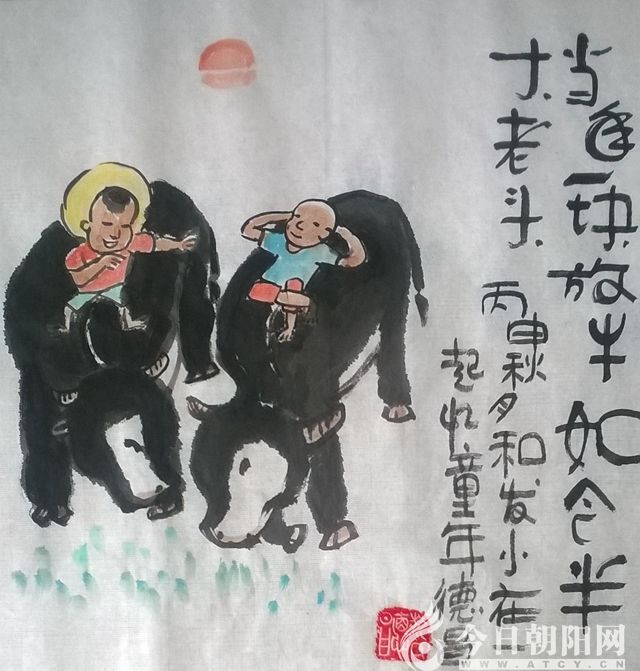 挡年一块放牛如今半
十老头
丙申秋月和发小在一
起忆童年德昌
今日朝阳网
WWW.ATCY.CN